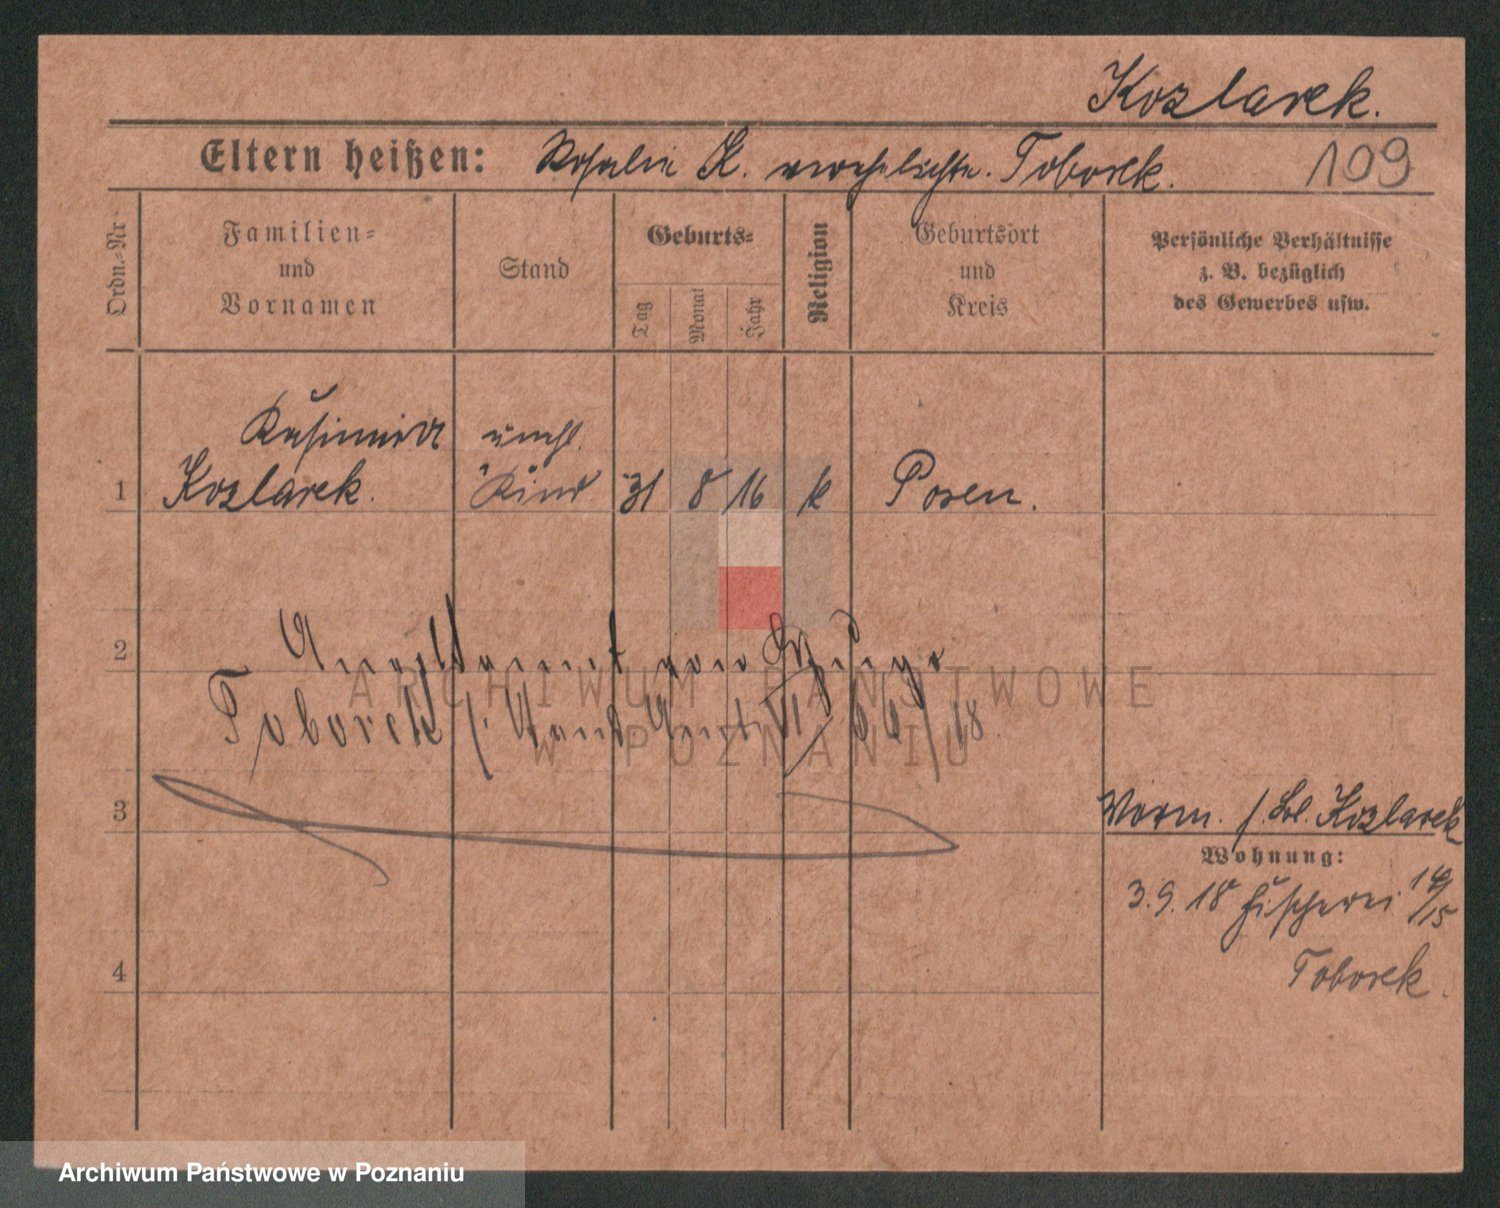 Kozlarek.
Eltern heißen: Rosalie K. verehelichte. Toborek. 109
Ordn.-Nr
Familien-
und
Vornamen
Stand
Geburts-
Tag
Monat
Jahr
Religion
Geburtsort
und
Kreis
Persönliche Verhältnisse
z. B. bezüglich
des Gewerbes usw.
Kasimira unehl.
1 Kozlarek. Kind 31 8 16 k Posen.
2
Toborek
18.
ARCHIWUM PAŃSTWOWE
W POZNANIU
3
Vorm. Kozlarek
Wohnung:
3.9.18 Fischerei 14/15
Toborek.
4
Archiwum Państwowe w Poznaniu